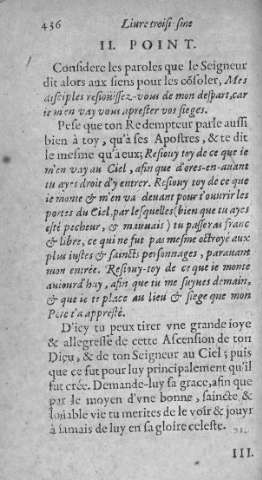 436 Liure troisi sme
II. POINT.
Considere les paroles que le Seigneur
dit alors aux siens pour les cōsoler, Mes
disciples resiouissez-vous de mon despart, car
ie m'en vay vous aprester vos sieges.
Pese que ton Redempteur parle aussi
bien à toy, qu'à ses Apostres, & te dit
le mesme qu'à eux; Resiouy toy de ce que ie
m'en vay au Ciel, afin que d'ores-en-auant
tu ayes droit d'y entrer. Resiouy toy de ce que
ie monte & m'en va deuant pour t'ouurir les
portes du Ciel, par lesquelles (bien que tu ayes
esté pecheur, & mauuais) tu passeras franc
& libre, ce qui ne fut pas mesme octroyé aux
plus iustes & saincts personnages, parauant
mon entrée. Resiouy-toy de ce que ie monte
auiourd'huy, afin que tu me suyues demain,
& que ie te place au lieu & siege que mon
Pere t'a appresté.
D'icy tu peux tirer vne grande ioye
& allegresse de cette Ascension de ton
Dieu, & de ton Seigneur au Ciel; puis
que ce fut pour luy principalement qu'il
fut crée. Demande-luy sa grace, afin que
par le moyen d'vne bonne, saincte &
loüable vie tu merites de le voir & jouyr
à jamais de luy en sa gloire celeste.
III.